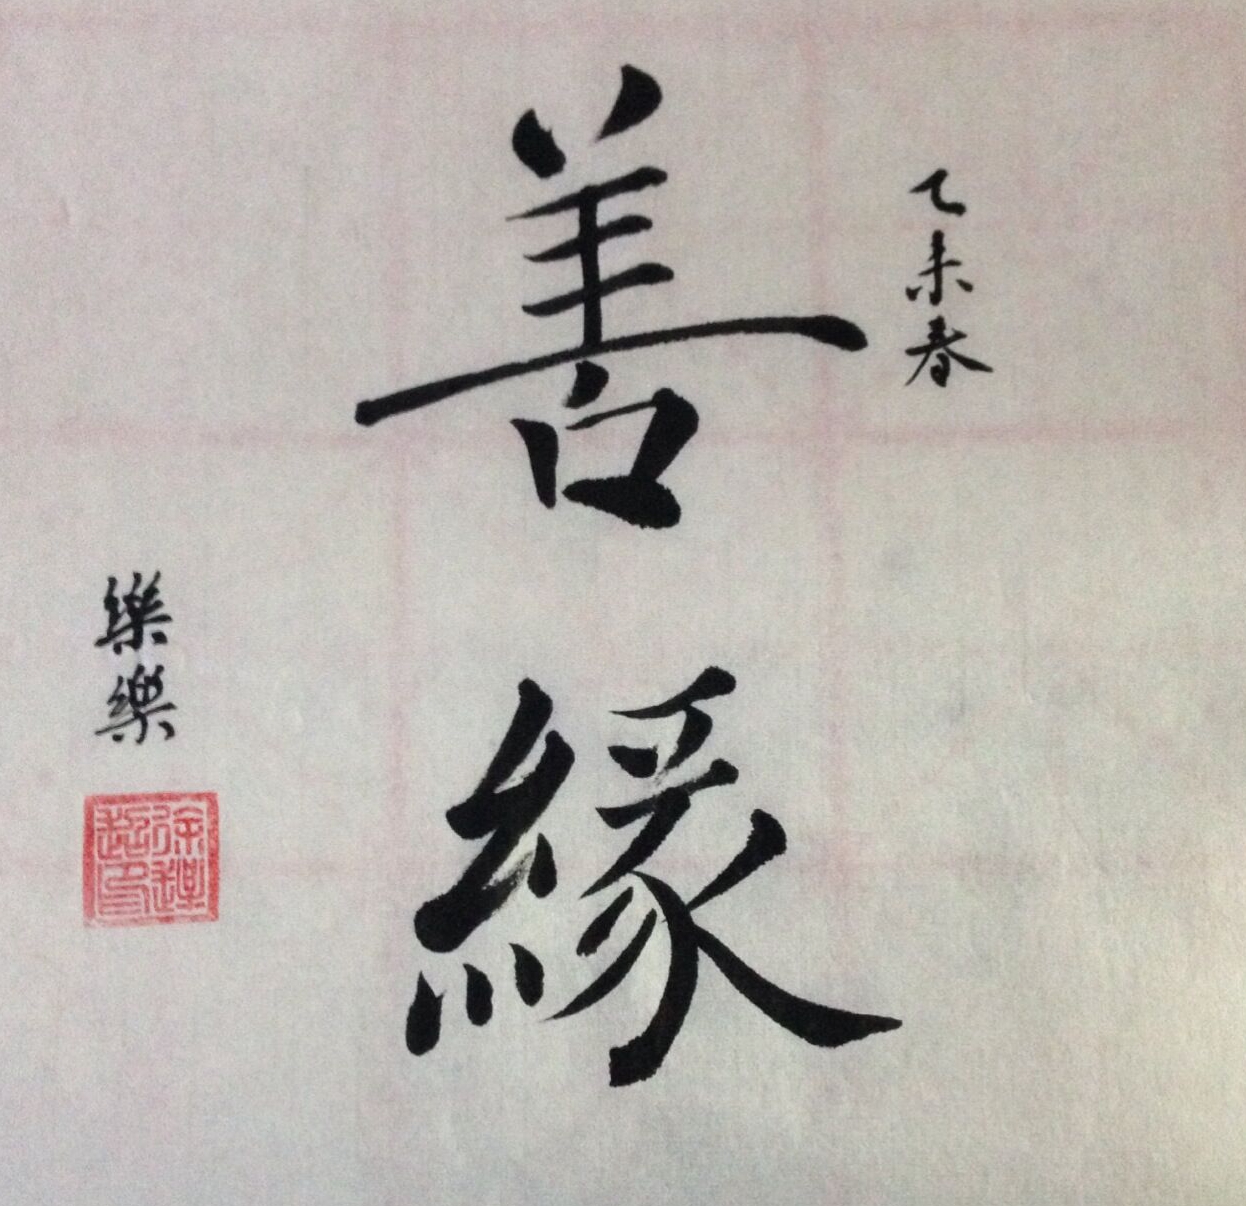 乙未春
善
緣
樂樂